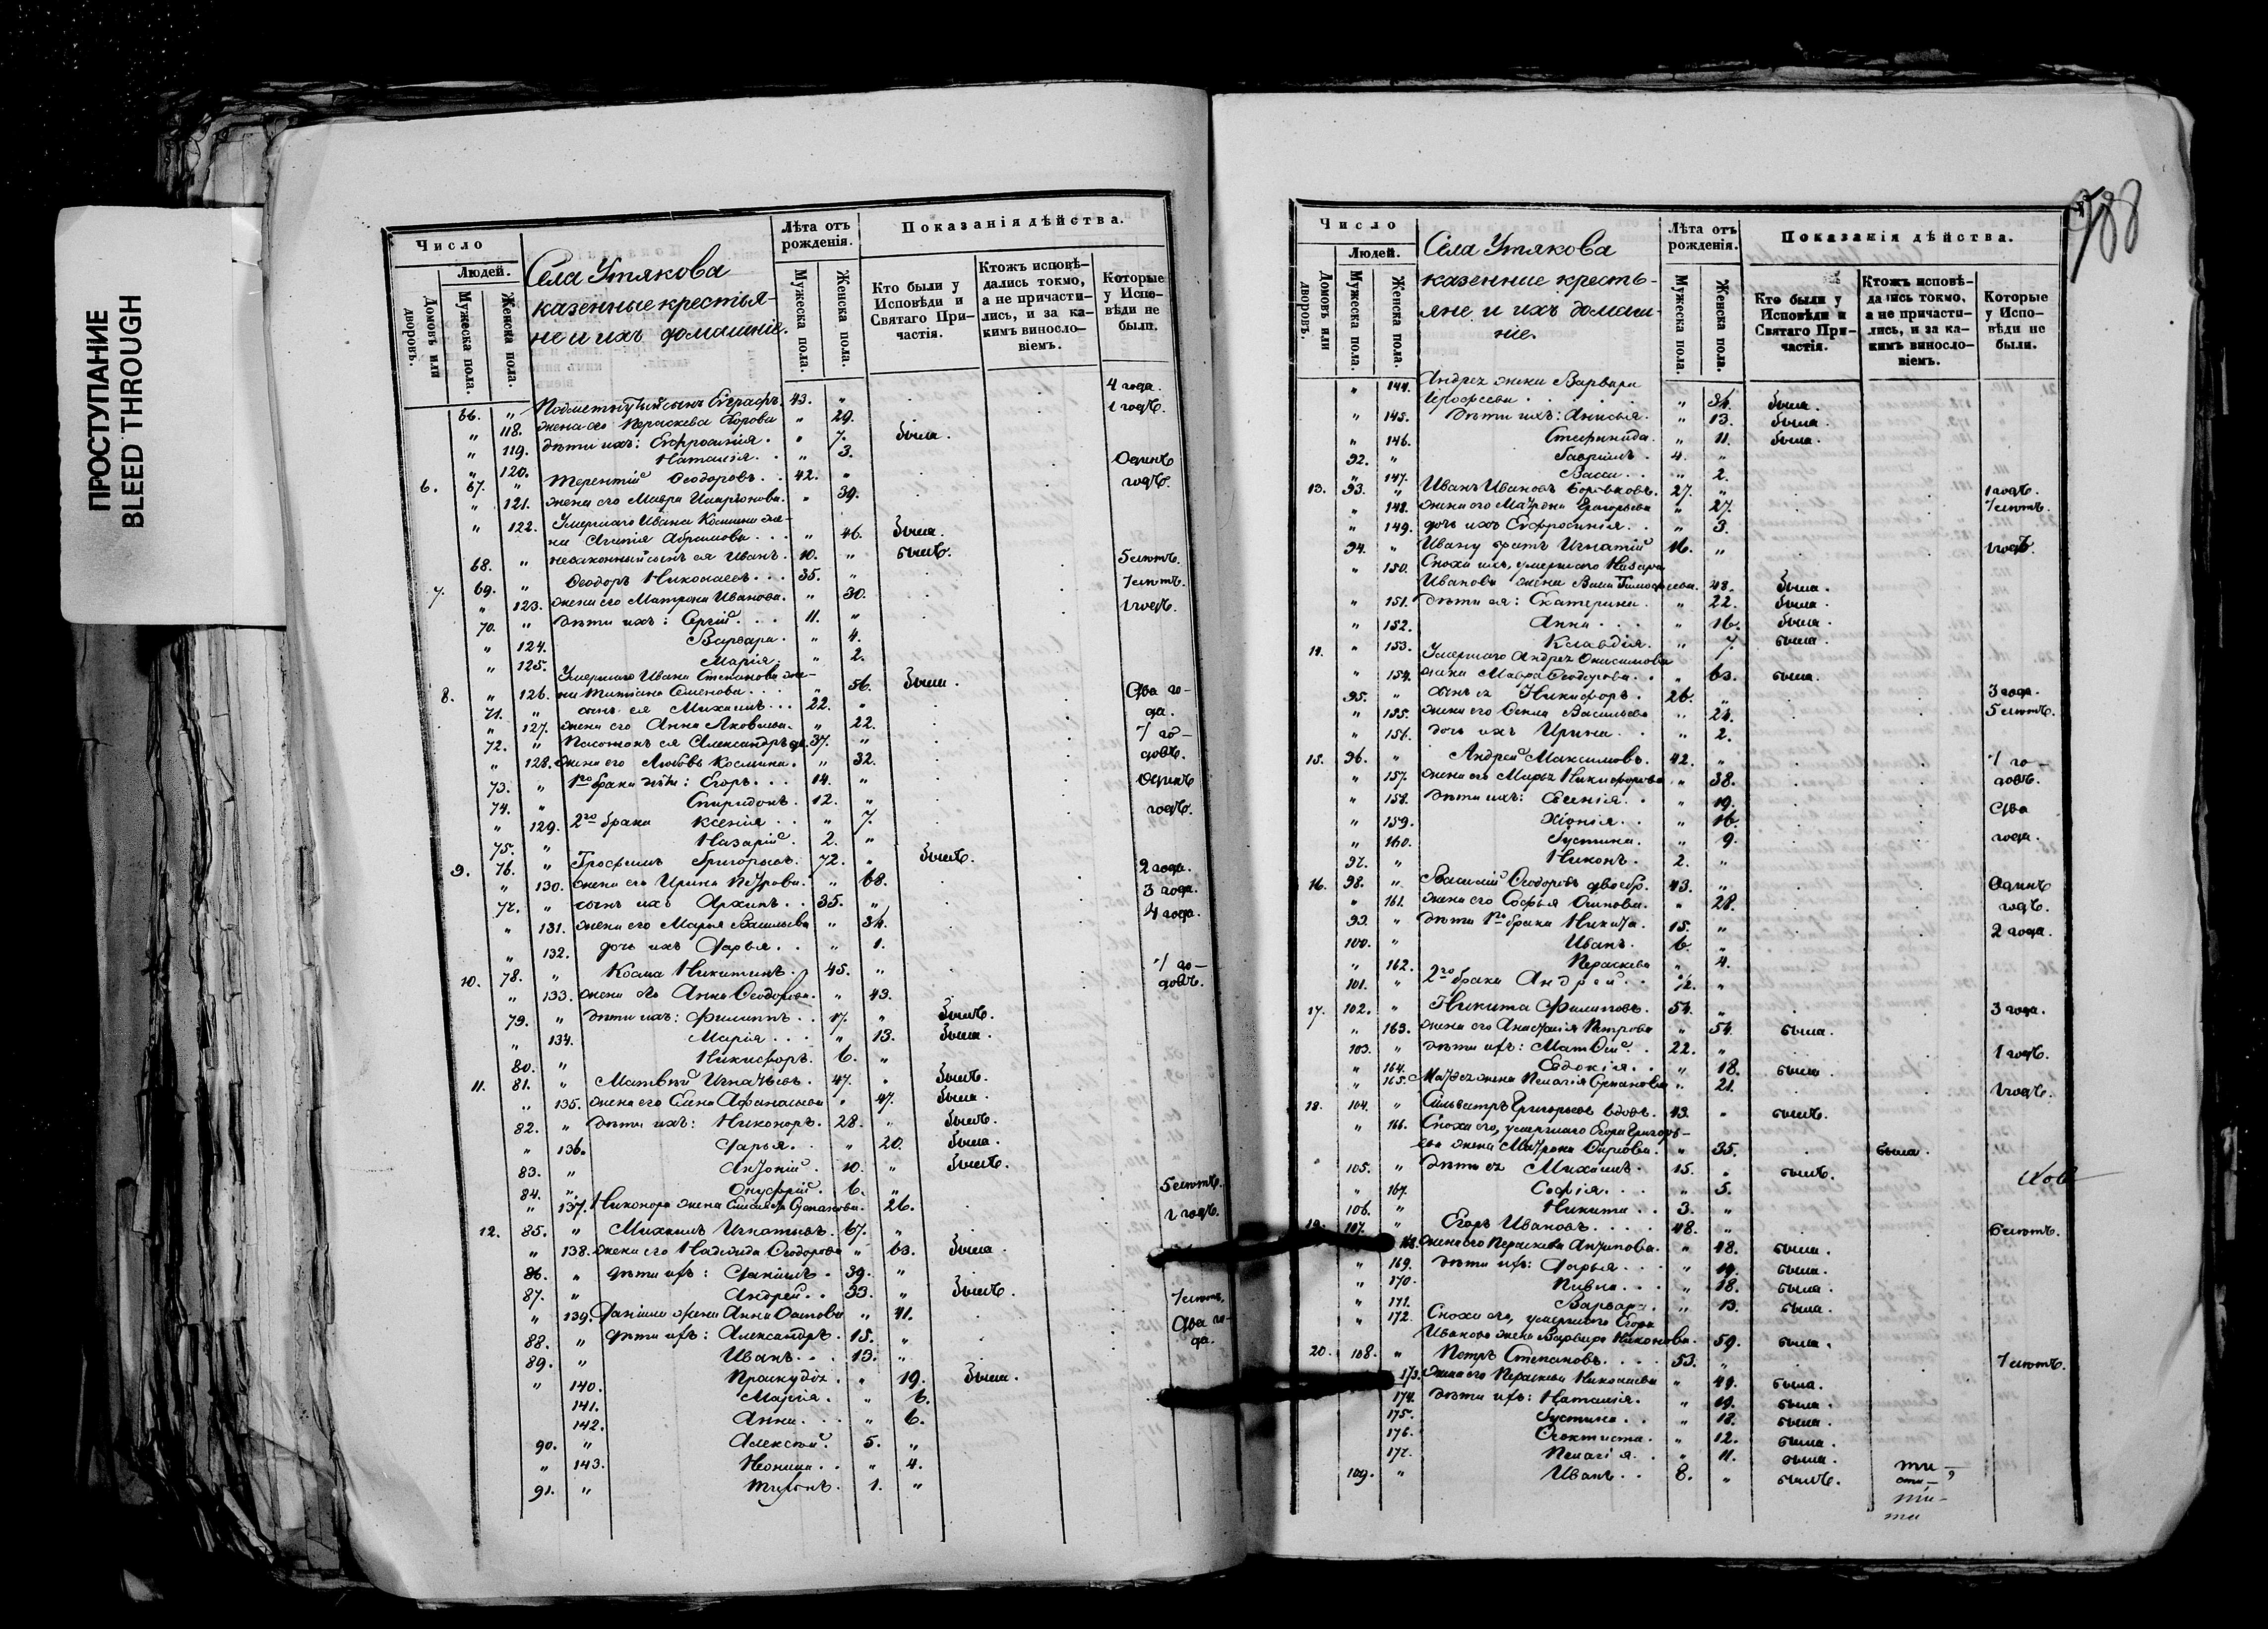 ПРОСТУПАНИЕ
BLEED THROUGH
Число
Людей.
Домовъ или дворовъ.
Мужеска пола.
Женска пола.
Села Утякова
казенные крестья-
не и ихъ домашніе.
Лѣта отъ рожденія.
Мужеска пола.
Женска пола.
Показанія дѣйства.
Кто были у Исповѣди и Святаго Причастія.
Ктожъ исповѣ-
дались токмо,
а не причасти-
лись, и за ка-
кимъ винословіемъ.
Которые у Испо-
вѣди не были.
66. " Подметнутый сынъ Евграфъ. 43. " 4 года.
" 118. жена его Параскева Егорова " 29. 1 годъ.
" 119. дѣти ихъ: Евфросинія. " 7. была.
" 120. Наталія. " 3.
6. 67. " Терентій Ѳеодоровъ. 42. " Одинъ
" 121. жена его Мавра Иларіонова. " 39. годъ.
" 122. Умершаго Ивана Космина же-
на Агапія Абрамова. " 46. была.
68. " незаконный сынъ ея Иванъ. 10. " былъ.
7. 69. " Ѳеодоръ Николаевъ. 35. " 5 лѣтъ.
" 123. жена его Матрона Иванова. " 30. 7 лѣтъ.
70. " дѣти ихъ: Сергій. 11. " 1 годъ.
" 124. Варвара. " 4.
" 125. Марія. " 2.
Умершаго Ивана Степанова же-
8. " 126. на Татіана Семенова. " 56. была.
71. " сынъ ея Михаилъ. 22. " Два го-
" 127. жена его Анна Яковлева. " 22. да.
72. " Пасынокъ ея Александръ 37. " 7 го-
" 128. жена его Любовь Космина. " 32. довъ.
73. " 1го брака дѣти: Егоръ. 14. " Одинъ
74. " Спиридонъ. 12. " годъ.
" 129. 2го брака Ксенія. " 7
75. " Назарій. 2. "
9. 76. " Григорьевъ. 72. " былъ.
" 130. жена его Ирина Петрова. " 68. 2 года.
77. " сынъ ихъ Архипъ. 35. " 3 года.
" 131. жена его Марья Васильева " 34. 4 года.
" 132. дочь ихъ Дарья. " 1.
10. 78. " Косма Никитинъ. 45. " 7 го-
" 133. жена его Анна Ѳеодорова. " 43. довъ.
79. " дѣти ихъ: Филиппъ. 17. " былъ.
" 134. Марія. " 13. была.
80. " Никифоръ. 6. "
11. 81. " Матвей Игнатьевъ. 47. " былъ.
" 135. жена его Елена Афанасьева " 47. была.
82. " дѣти ихъ: Никоноръ. 28. " былъ.
" 136. Дарья. " 20. была.
83. " Антоній. 10. " былъ.
84. " Онуфрій. 6. " 5 лѣтъ.
" 137. Никонора жена 26. 1 годъ.
12. 85. " Михаилъ Игнатьевъ. 67. "
" 138. жена его Надежда Ѳеодорова " 63. была.
86. " дѣти ихъ: Даніилъ. 39. "
87. " Андрей. 33. " былъ.
" 139. Даніила жена Анна " 41. 7 лѣтъ.
88. " дѣти ихъ: Александръ. 15. " Два го-
89. " Иванъ. 13. " да.
" 140. " 19. была.
141. Марія. " 6.
142. Анна. " 6.
90. " Алексѣй. 5. "
" 143. " 4.
91. " 1. "
988
Число
Людей.
Домовъ или дворовъ.
Мужеска пола.
Женска пола.
Села Утякова
казенние кресть-
яне и ихъ домаш-
ніе.
Лѣта отъ рожденія.
Мужеска пола.
Женска пола.
Показанія дѣйства.
Кто были у Исповѣди и Святаго При-
частія.
Ктожъ исповѣ-
дались токмо,
а не причасти-
лись, и за ка-
кимъ винословіемъ.
Которые у Испо-
вѣди не были.
" 144. Андрея жена Варвара
Ерофеева " 34. была.
" 145. дѣти ихъ: Анисья. " 13. была.
" 146. Стефанида. " 11. была.
92. " Гавріилъ. 4. "
" 147. Васса. " 2.
13. 93. " Иванъ Ивановъ Боровковъ. 27. " 1 годъ.
" 148. жена его Матрона Григорьева " 27. 7 лѣтъ.
" 149. дочь ихъ Евфросинія. " 3.
94. " Ивану братъ Игнатій 16. " 1 годъ.
" 150. Сноха имъ, умершаго Назара
Иванова жена Васса Тимофеева. 48. была.
" 151. дѣти ея: Екатерина. " 22. была.
" 152. Анна " 16. была.
" 153. Клавдія. " 7. была.
14. Умершаго Андрея Онисимова
" 154. жена Мавра Ѳеодорова. " 63. была.
95. " сынъ ея Никифоръ. 26. " 3 года.
" 155. жена его Ѳекла Васильева " 24. 5 лѣтъ.
" 156. дочь ихъ Ирина. " 2.
15. 96. " Андрей Максимовъ. 42. " 7 го-
" 157. жена его Марья Никифорова " 38. довъ.
" 158. дѣти ихъ: Евгенія. " 19. Два
" 159. Хіонія. " 16. года.
" 160. Густина. " 9.
97. " Никонъ. 2. "
16. 98. " Василій Ѳеодоровъ двоебр. 43. " Одинъ
" 161. жена его Софья Осипова. " 28. годъ.
99. " дѣти 1го брака Никита. 15. " 2 года.
100. " Иванъ. 6. "
" 162. Параскева " 4.
101. " 2го брака Андрей. "
17. 102. " Никита Филиповъ. 54. " 3 года.
" 163. жена его Анастасія Петрова " 54. была.
103. " дѣти ихъ: Матвей. 22. " 1 годъ.
" 164. Евдокія. " 18. была.
" 165. Матвея жена Пелагія Степанова " 21. 1 годъ.
18. 104. " Сильвестръ Григорьевъ вдовъ. 43. " былъ.
" 166. Сноха его, умершаго Егора Григорь-
ева жена Матрона Карпова. " 35. была.
105. " дѣти ея Михаилъ. 15. " былъ.
" 167. Софія. " 5.
106. " Никита. 3. "
19. 107. " Егоръ Ивановъ. 48. " 6 лѣтъ.
168. жена его Параскева Антипова. " 48. была.
" 169. дѣти ихъ: Дарья. " 19. была.
" 170. " 18. была.
" 171. Варвара. " 13. была.
" 172. Сноха его, умершаго Егора
Иванова жена Варвара Никонова. 59. была.
20. 108. " Петръ Степановъ. 53. " 7 лѣтъ.
173. жена его Параскева Николаева " 49. была.
174. дѣти ихъ: Наталія. " 19. была.
175. Густина. " 18. была.
176. Ѳеоктиста. " 12. была.
177. Пелагія. " 11. была.
109. " Иванъ. 8. " былъ.